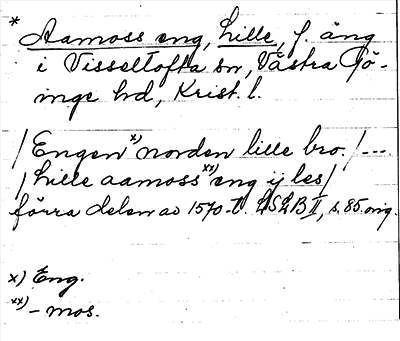 * Aamoss eng, Lille, f. äng
i Visseltofta sn, Västra Gö-
inge hd, Krist. l.
/Engen x) norden lille bro./---
/Lille aamoss xx) eng ij les/
förra delen av 1570-t. LSLB II, s. 85 orig.
x) Eng.
xx) - mos.